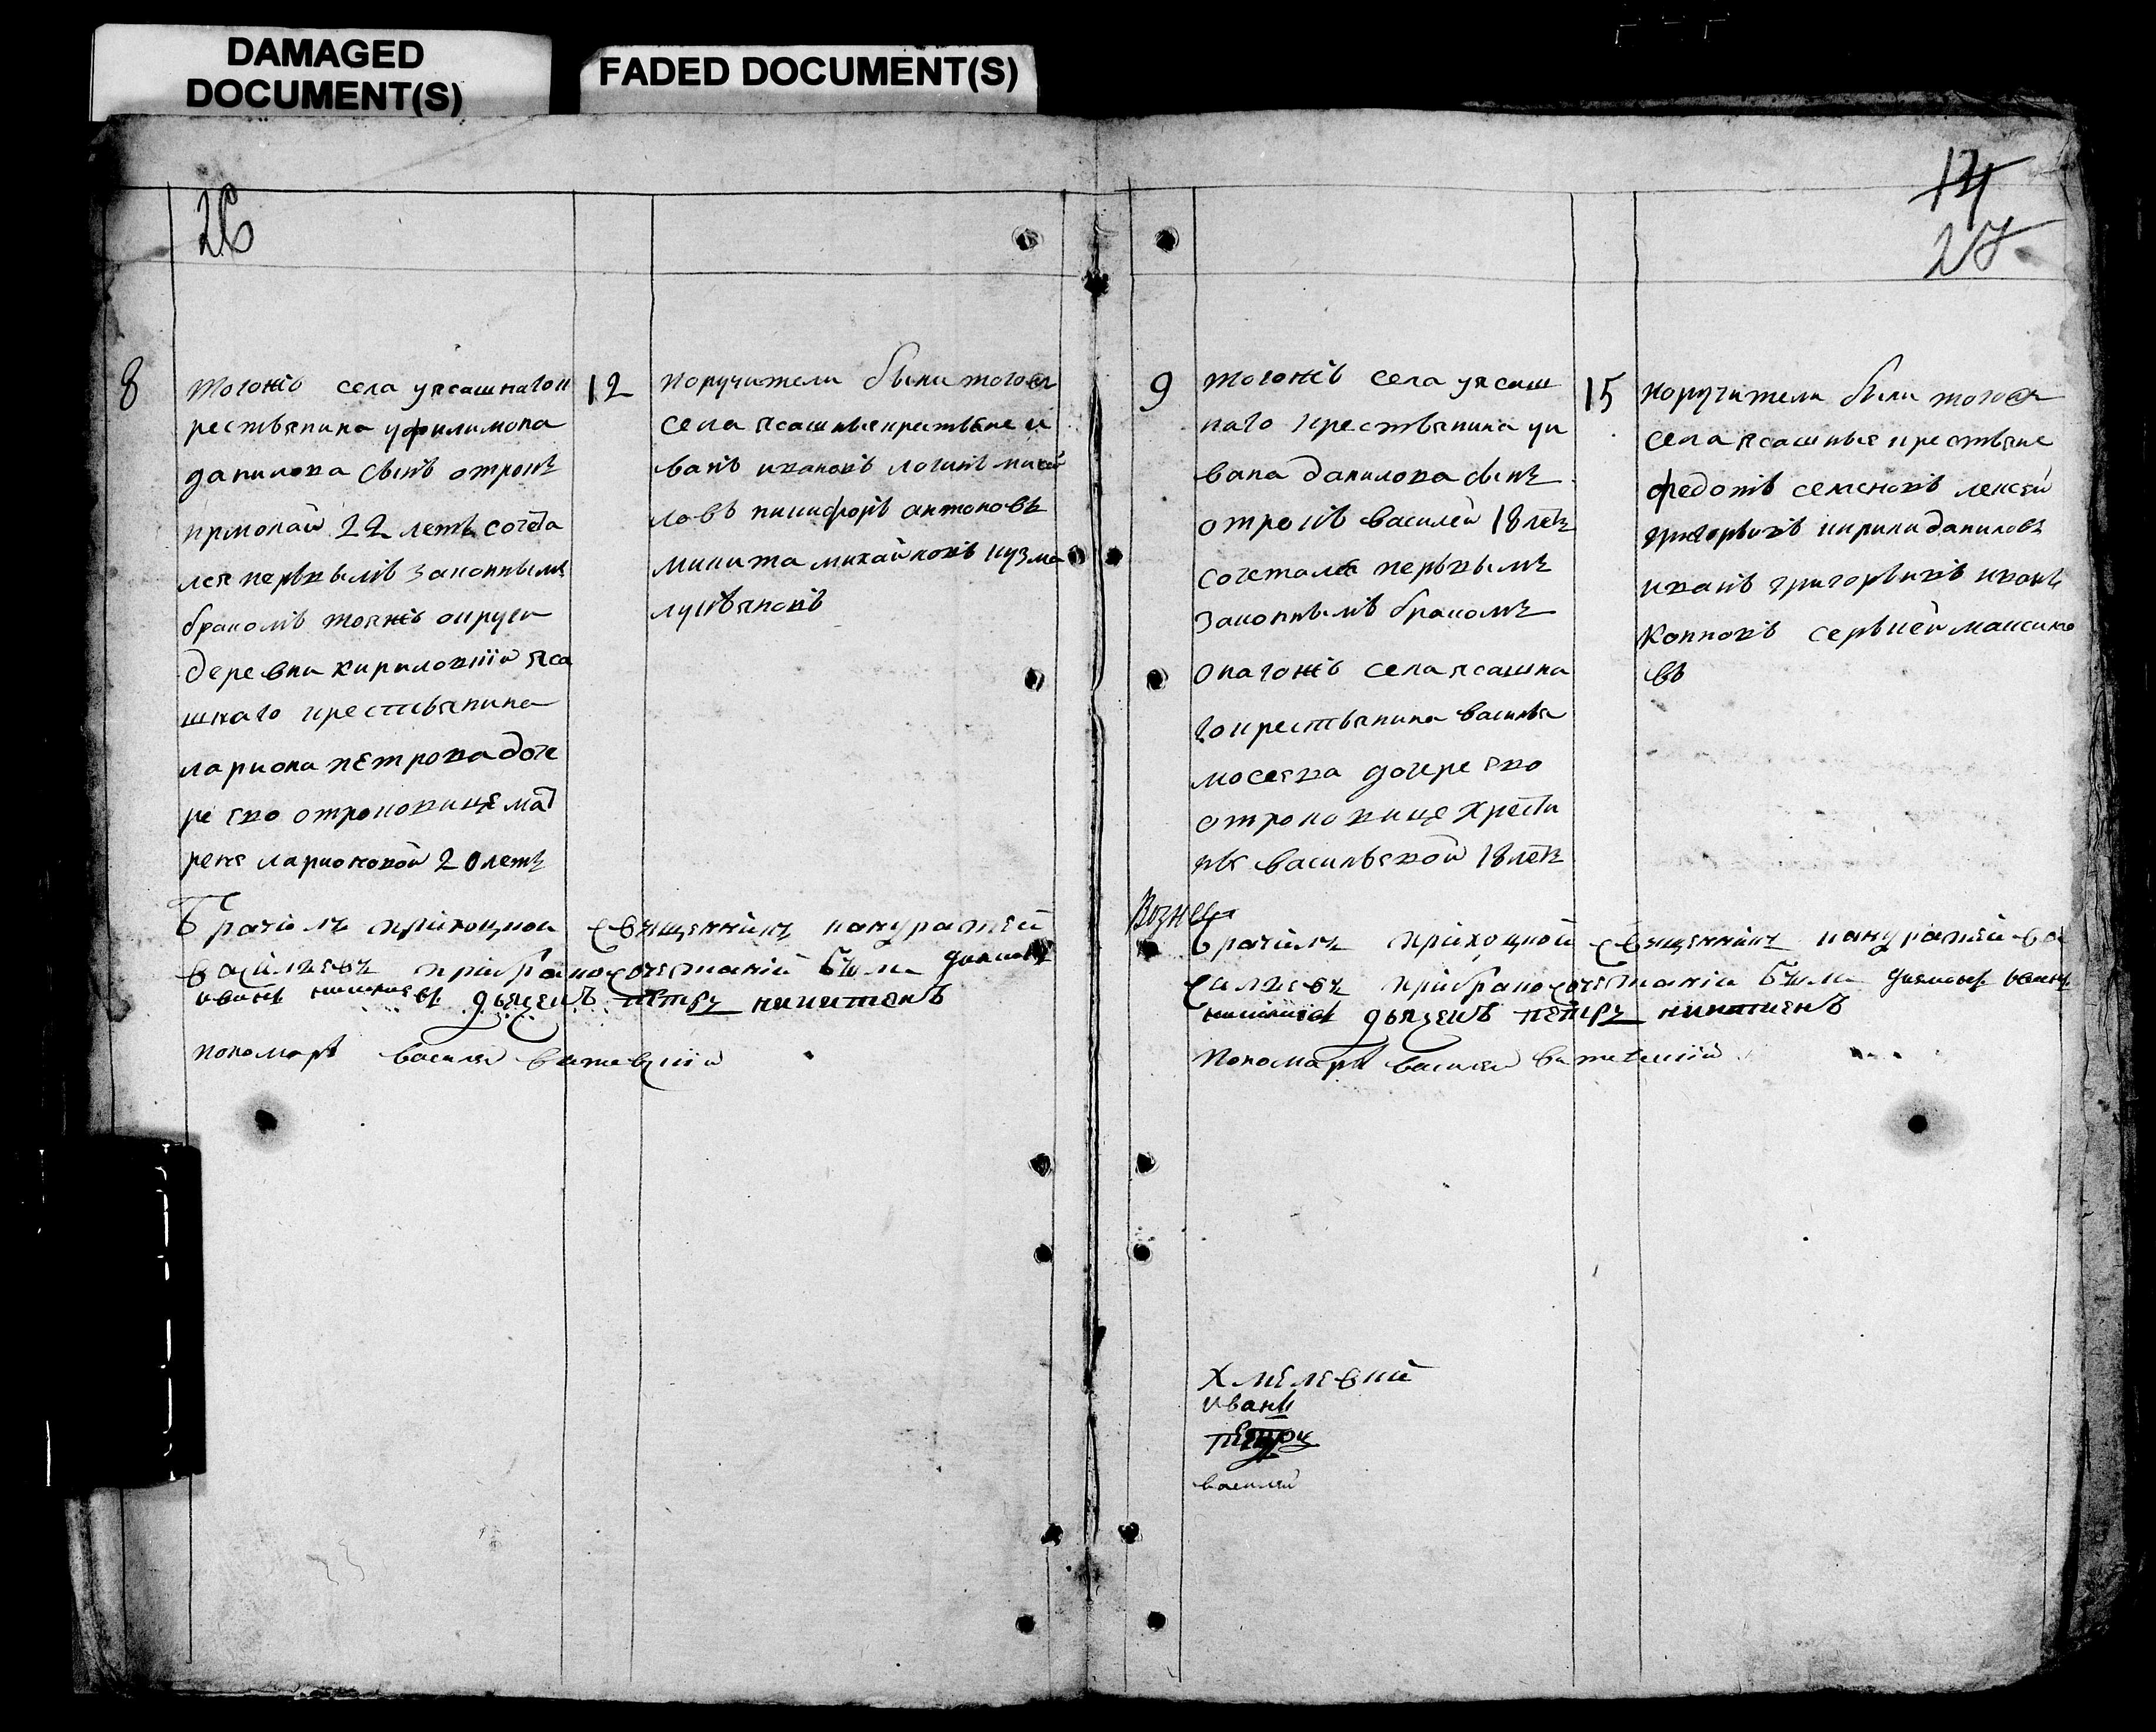 DAMAGED
DOCUMENT(S)
FADED DOCUMENT(S)
26
8
тогожъ села уясашнагок
рестьянина уфилимона
данилова сынъ отрокъ
ермолай 22 летъ сочета
лся первымъ законнымъ
бракомъ тояжъ округи
деревни кириловкій яса
шнаго крестьянина
лариона петрова доче
рею отроковицею мат
реня ларионовой 20 летъ
12
поручители были тогож
села ясашныя крестьяне и
ванъ ивановъ логинъ
ловъ никифоръ антоновъ
микита михайловъ кузма
лукьяновъ
Брачилъ приходной священникъ
василиевъ при бракосочетаній были диаконъ
иванъ дьячекъ петръ никитенъ
пономарь василей
14
27
9
тогожъ села уясаш
наго крестьянина уи
вана данилова сынъ
отрокъ василей 18 летъ
сочетался первымъ
законнымъ бракомъ
онагожъ села ясашна
гокрестьянина василья
мосеева дочерею
отроковицею хрести
нья васильевой 18 летъ
15
поручители были тогож
села ясашныя крестьяне
федотъ семеновъ лексей
григорьевъ кирила даниловъ
иванъ григорьевъ иванъ
коноовъ сергей максимо
въ
Вознес
Брачилъ приходной священникъ ва
силиевъ при бракосочетаніи были диаконъ иванъ
дьячекъ петръ никитенъ
Пономарь василей
Хмелевкій
иванъ
петръ
василей